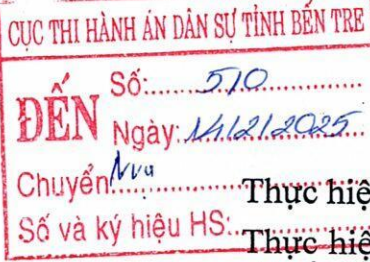 CỤC THI HÀNH ÁN DÂN SỰ TỈNH BẾN TRE
ĐẾN
Số: 510
Ngày: 14/2/2025
Chuyển
Số và ký hiệu HS:
Thực hiệ
Thực hiệ